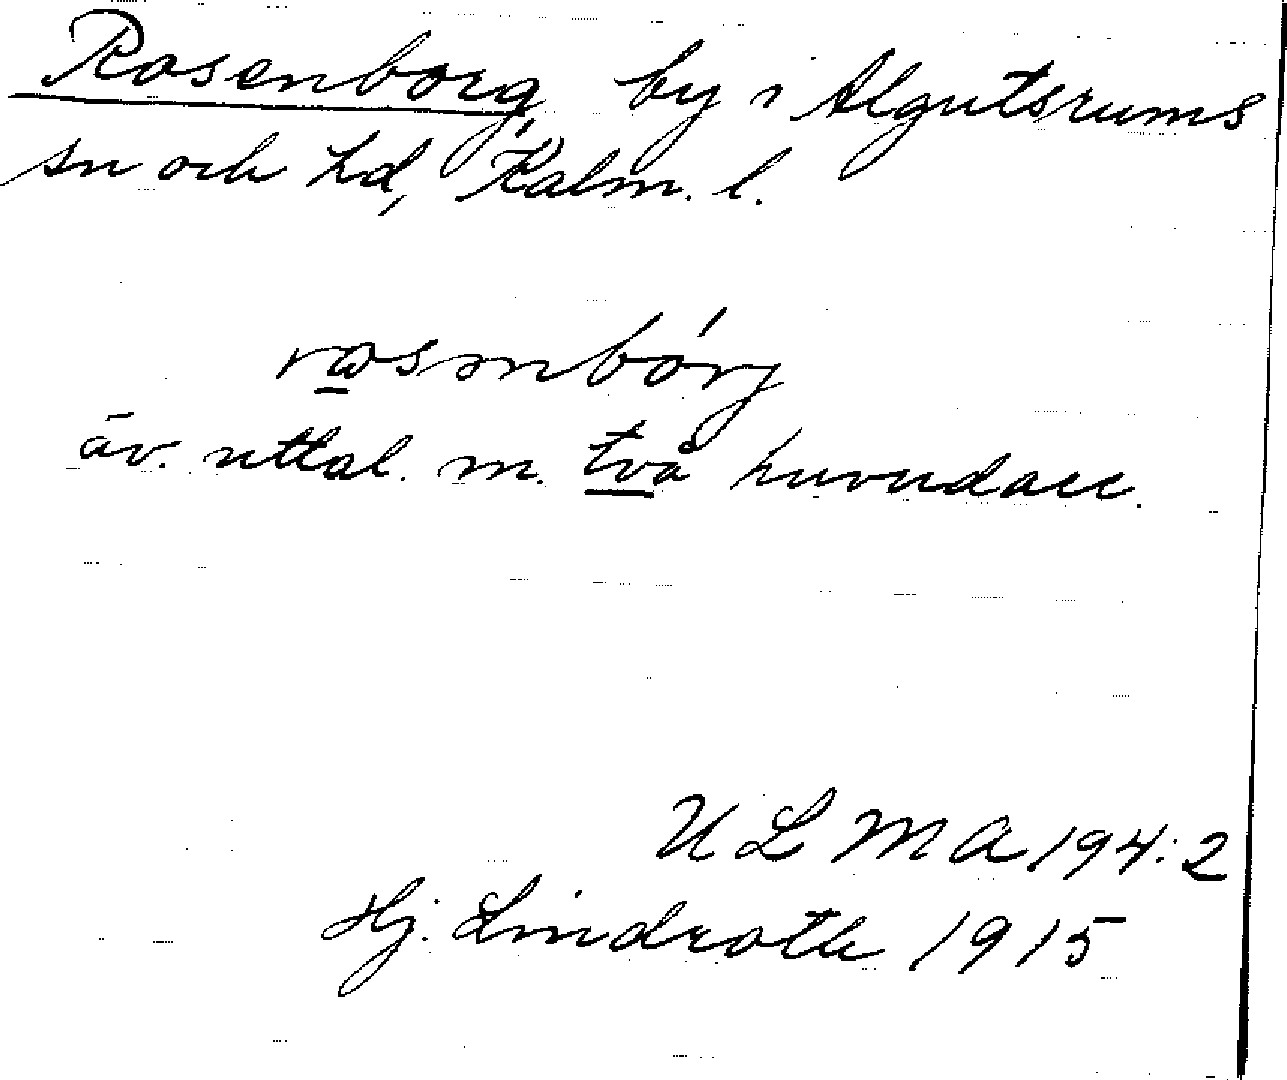 Rosenborg, by i Algutsrums
sn och hd, Kalm. l.
rωsənbórj
äv. uttal. m. två huvudacc.
ULMA 194:2
Hj. Lindroth 1915